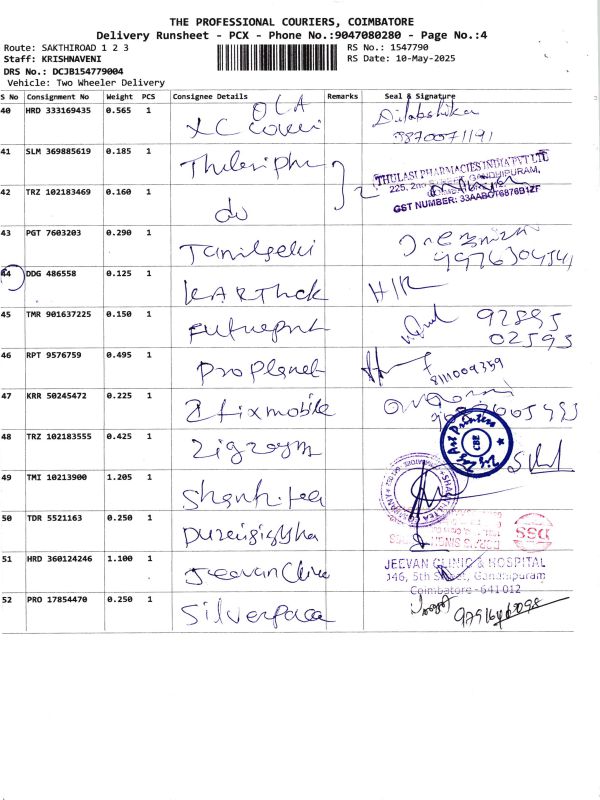 THE PROFESSIONAL COURIERS, COIMBATORE
Delivery Runsheet - PCX - Phone No.:9047080280 - Page No.:4
Route: SAKTHIROAD 1 2 3
Staff: KRISHNAVENI
DRS No.: DCJB154779004
Vehicle: Two Wheeler Delivery
RS No.: 1547790
RS Date: 10-May-2025
S No Consignment No Weight PCS Consignee Details Remarks Seal & Signature
40 HRD 333169435 0.565 1 OLA
9870071191
41 SLM 369885619 0.185 1 Thulasipha
THULASI PHARMACIES INDIA PVT LTD
225, 2nd STREET, GANDHIPURAM,
GST NUMBER: 33AABCT6876B1ZF
42 TRZ 102183469 0.160 1 do
43 PGT 7603203 0.290 1 Tamilselvi
44 DDG 486558 0.125 1 KARThck H/R
45 TMR 901637225 0.150 1 Futurepnt 92895
02593
46 RPT 9576759 0.495 1 Proplanet 8111009359
47 KRR 50245472 0.225 1 2fixmobile
48 TRZ 102183555 0.425 1 Zigzagm
Zig Zag Art Printers
CBE
49 TMI 10213900 1.205 1 Shanh.tea
50 TDR 5521163 0.250 1
DSS
51 HRD 360124246 1.100 1 Jeevan Clinic
JEEVAN CLINIC & HOSPITAL
146, 5th Street, Gandhipuram
Coimbatore - 641 012
52 PRO 17854470 0.250 1 Silverpace